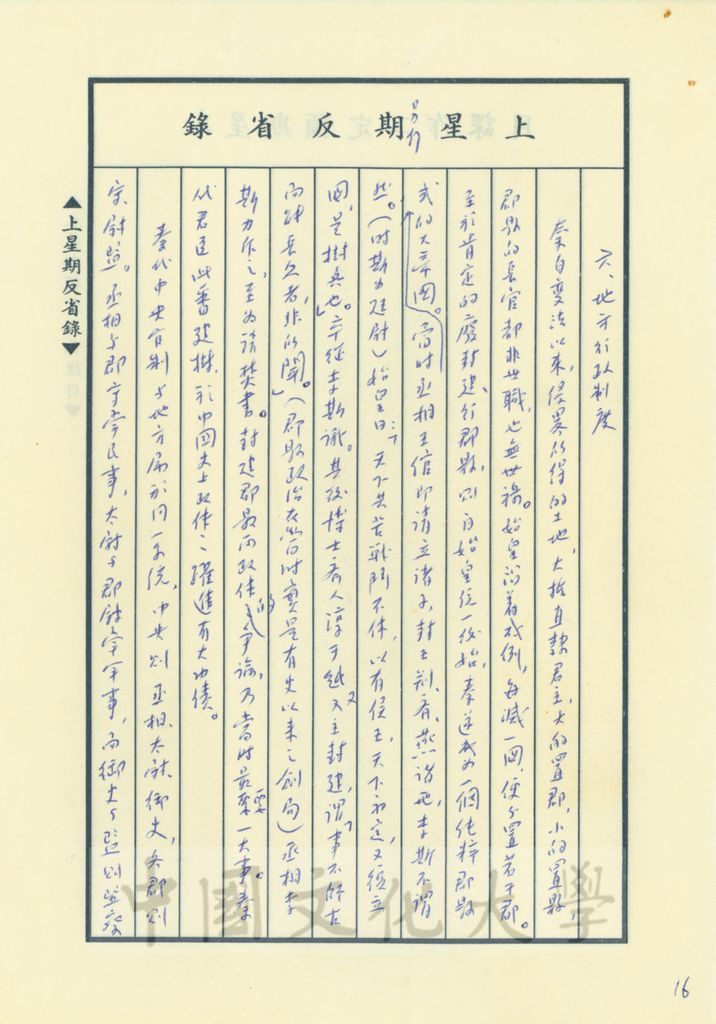 上星期反省錄
六、地方行政制度
秦自變法以來，侵略所得的土地，大抵直隸君主，大的置郡，小的置縣，
郡縣的長官都非世職，也無世祿。始皇沿着成例，每滅一國，便分置若干郡。
至於肯定的廢封建、行郡縣，則自始皇統一後始，秦遂成為一個純粹郡縣
式的大帝國。當時丞相王綰即請立諸子，封王荆、齊、燕諸地，李斯不謂
然。（時斯為廷尉）始皇曰：「天下共苦戰鬥不休，以有侯王，天下初定，又復立
國，是樹兵也。」卒從李斯議。其後博士齊人淳于越又主封建，謂「事不師古
而能長久者，非所聞。」（郡縣政治在當時實是有史以來之創局）丞相李
斯力斥之，至為請焚書。封建郡縣兩政体的爭論，乃當時最要一大事。秦
代君臣此番建樹，於中國史上政体之躍進有大功績。
秦代中央官制與地方屬於同一系統，中央則丞相、太尉、御史，各郡則
守、尉、監。丞相與郡守掌民事，太尉與郡尉掌軍事，而御史與監則監察
▲上星期反省錄▼
中國文化大學
16